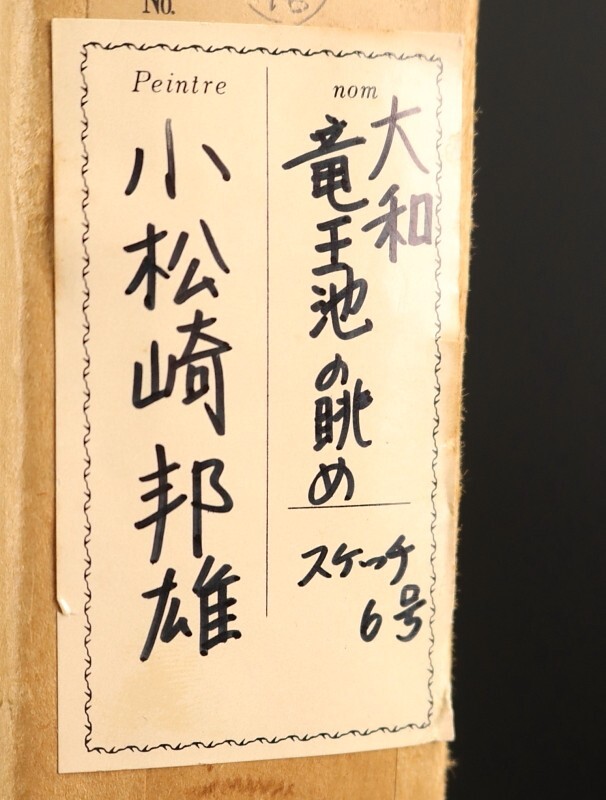 No.
Peintre
nom
大和
竜王池の眺め
スケッチ
6号
小松崎邦雄